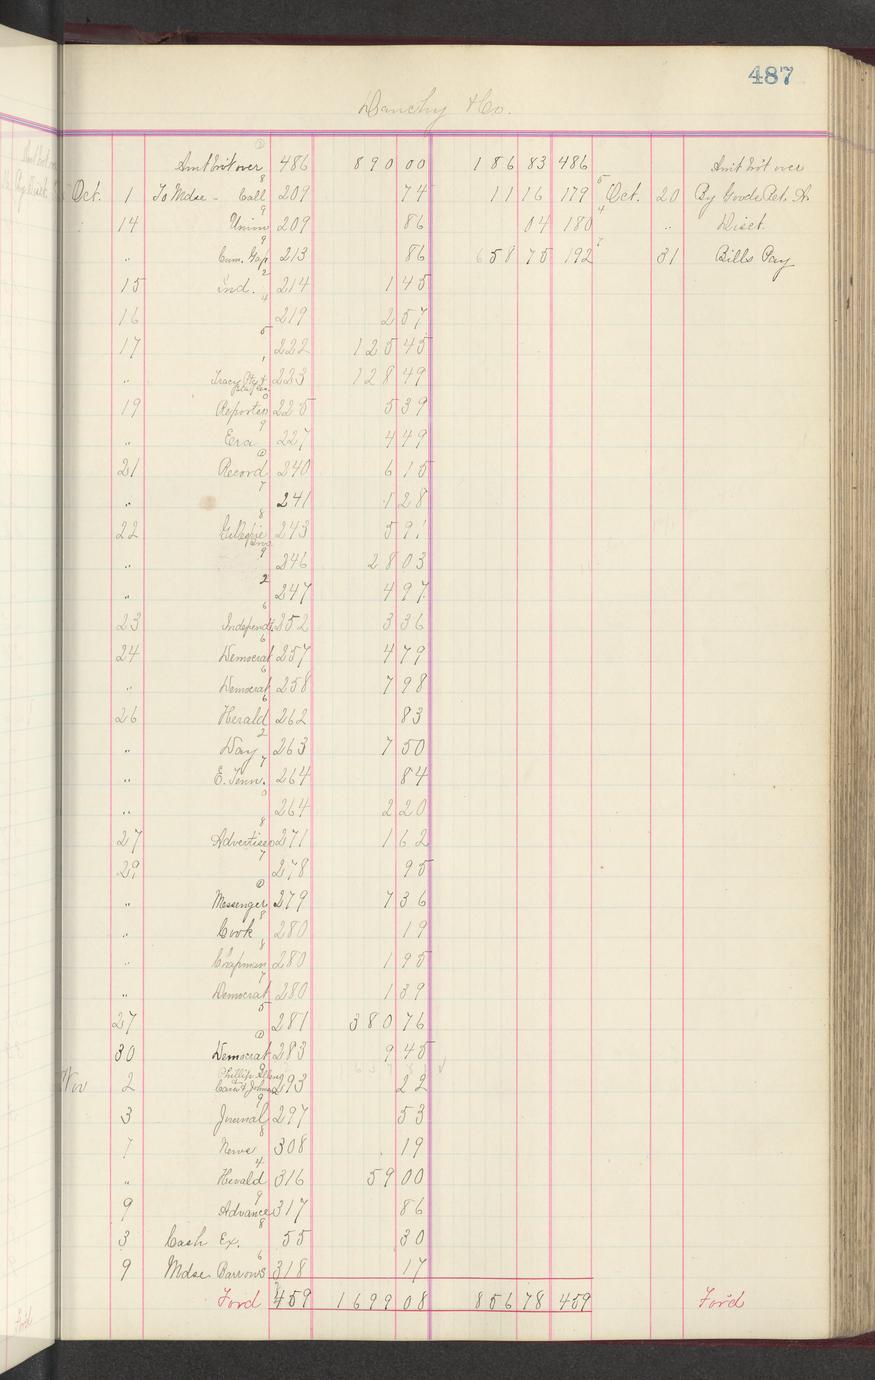 487
& Co.
Amt bro't over 486 890 00 186 83 486 Amt bro't over
Oct. 1 To Mdse - Call 209 74 11 16 179 Oct. 20 By Goods Ret. A
14 Union 209 86 04 180 " Disct.
" Cum. Gap 213 86 658 75 192 31 Bills Pay
15 Ind. 214 1 45
16 219 2 57
17 222 125 45
" Tracy 223 128 49
19 Reporter 225 5 39
" Era 227 4 49
21 Record 240 6 15
" 241 1 28
22 243 5 91
" 246 28 03
" 247 4 97
23 Independt 252 3 36
24 Democrat 257 4 79
" Democrat 258 7 98
26 Herald 262 83
" Day 263 7 50
" E. Tenn. 264 84
" 264 2 20
27 Advertiser 271 1 62
29 278 95
" Messenger 279 7 36
" Cook 280 19
" Chapman 280 1 95
" Democrat 280 1 39
27 281 380 76
30 Democrat 283 9 45
Nov 2 Phillip 293 22
3 Journal 297 53
7 News 308 19
" Herald 316 59 00
9 Advance 317 86
3 Cash Ex. 55 30
9 Mdse Barrows 318 17
For'd 459 1699 08 856 78 459 For'd